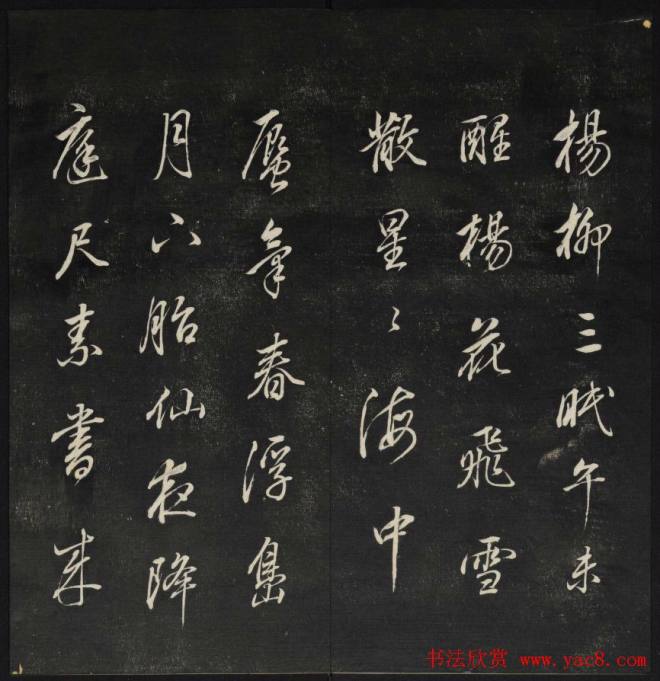 楊柳三眠午未
醒楊花飛雪
散星〻海中
蜃氣春浮島
月下胎仙夜降
庭尺素書来
书法欣赏 www.yac8.com